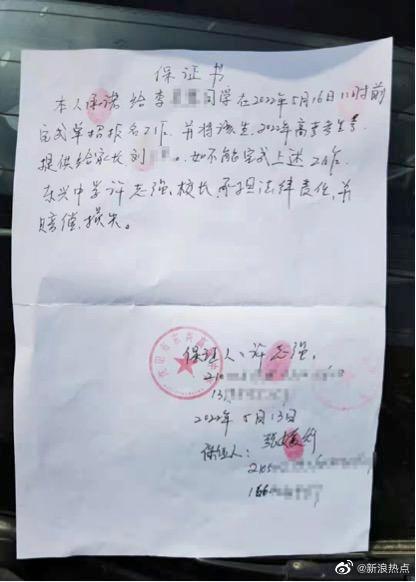 保证书
本人承诺给李同学在2022年5月16日11时前
完成单招报名工作，并将该生2022年高考考生号
提供给家长刘。如不能完成上述工作，
东兴中学许志强校长承担法律责任，并
赔偿损失。
保证人：许志强。
210
13
2022年5月13日
保证人：张
210
166
@新浪热点